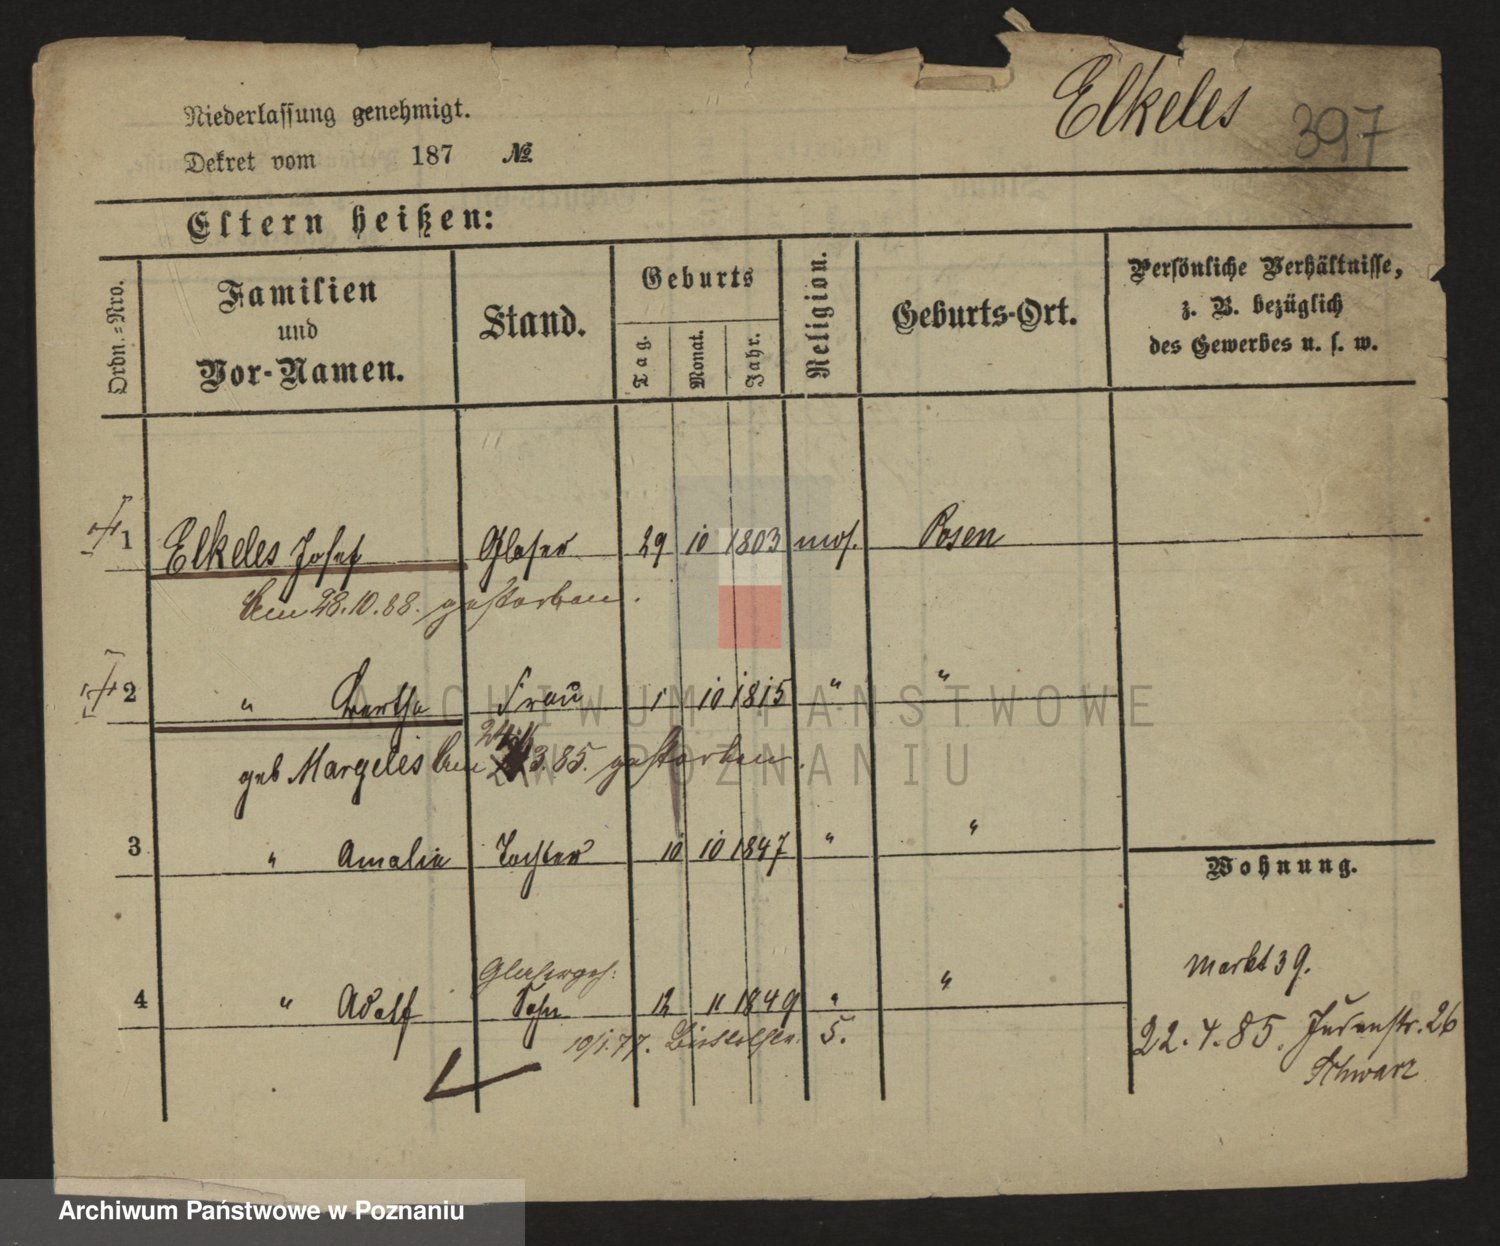 Elkeles 397
Niederlassung genehmigt.
Dekret vom 187 №
Eltern heißen:
Ordn.-Nro.
Familien
und
Vor-Namen.
Stand.
Geburts
Tag.
Monat.
Jahr.
Religion.
Geburts-Ort.
Persönliche Verhältnisse,
z. B. bezüglich
des Gewerbes u. s. w.
1 Elkeles Josef Glaser 29 10 1803 mos. Posen
Am 28.10.88. gestorben.
2 " Bertha Frau 1 10 1815 " "
geb Margeles Am 3.85. gestorben.
3 " Amalie Tochter 10 10 1847 " "
Wohnung.
Glaserges.
4 " Adolf Sohn 12 11 1849 " "
19/1.77. 5.
Markt 39.
22.4.85. Judenstr. 26
Schwarz
ARCHIWUM PAŃSTWOWE
W POZNANIU
Archiwum Państwowe w Poznaniu